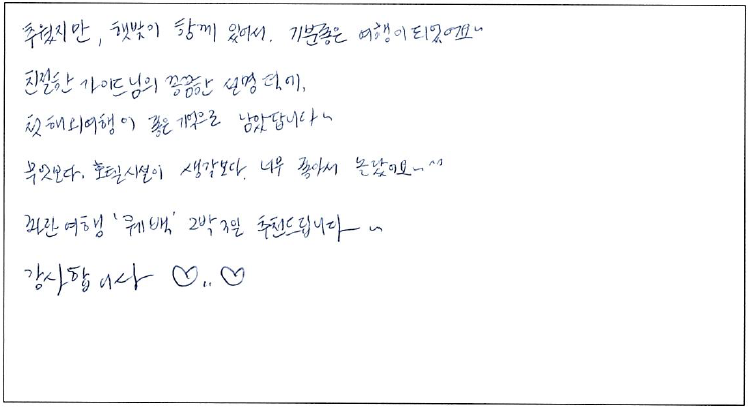 추웠지만, 햇빛이 함께 있어서. 기분좋은 여행이 되었어요~
친절한 가이드님의 꼼꼼한 설명 덕에,
첫해외여행이 좋은 기억으로 남았답니다~
무엇보다. 호텔시설이 생각보다. 너무 좋아서 놀랐어요~^^
화란여행 '퀘백' 2박3일 추천드립니다~~
감사합니다 ♡..♡